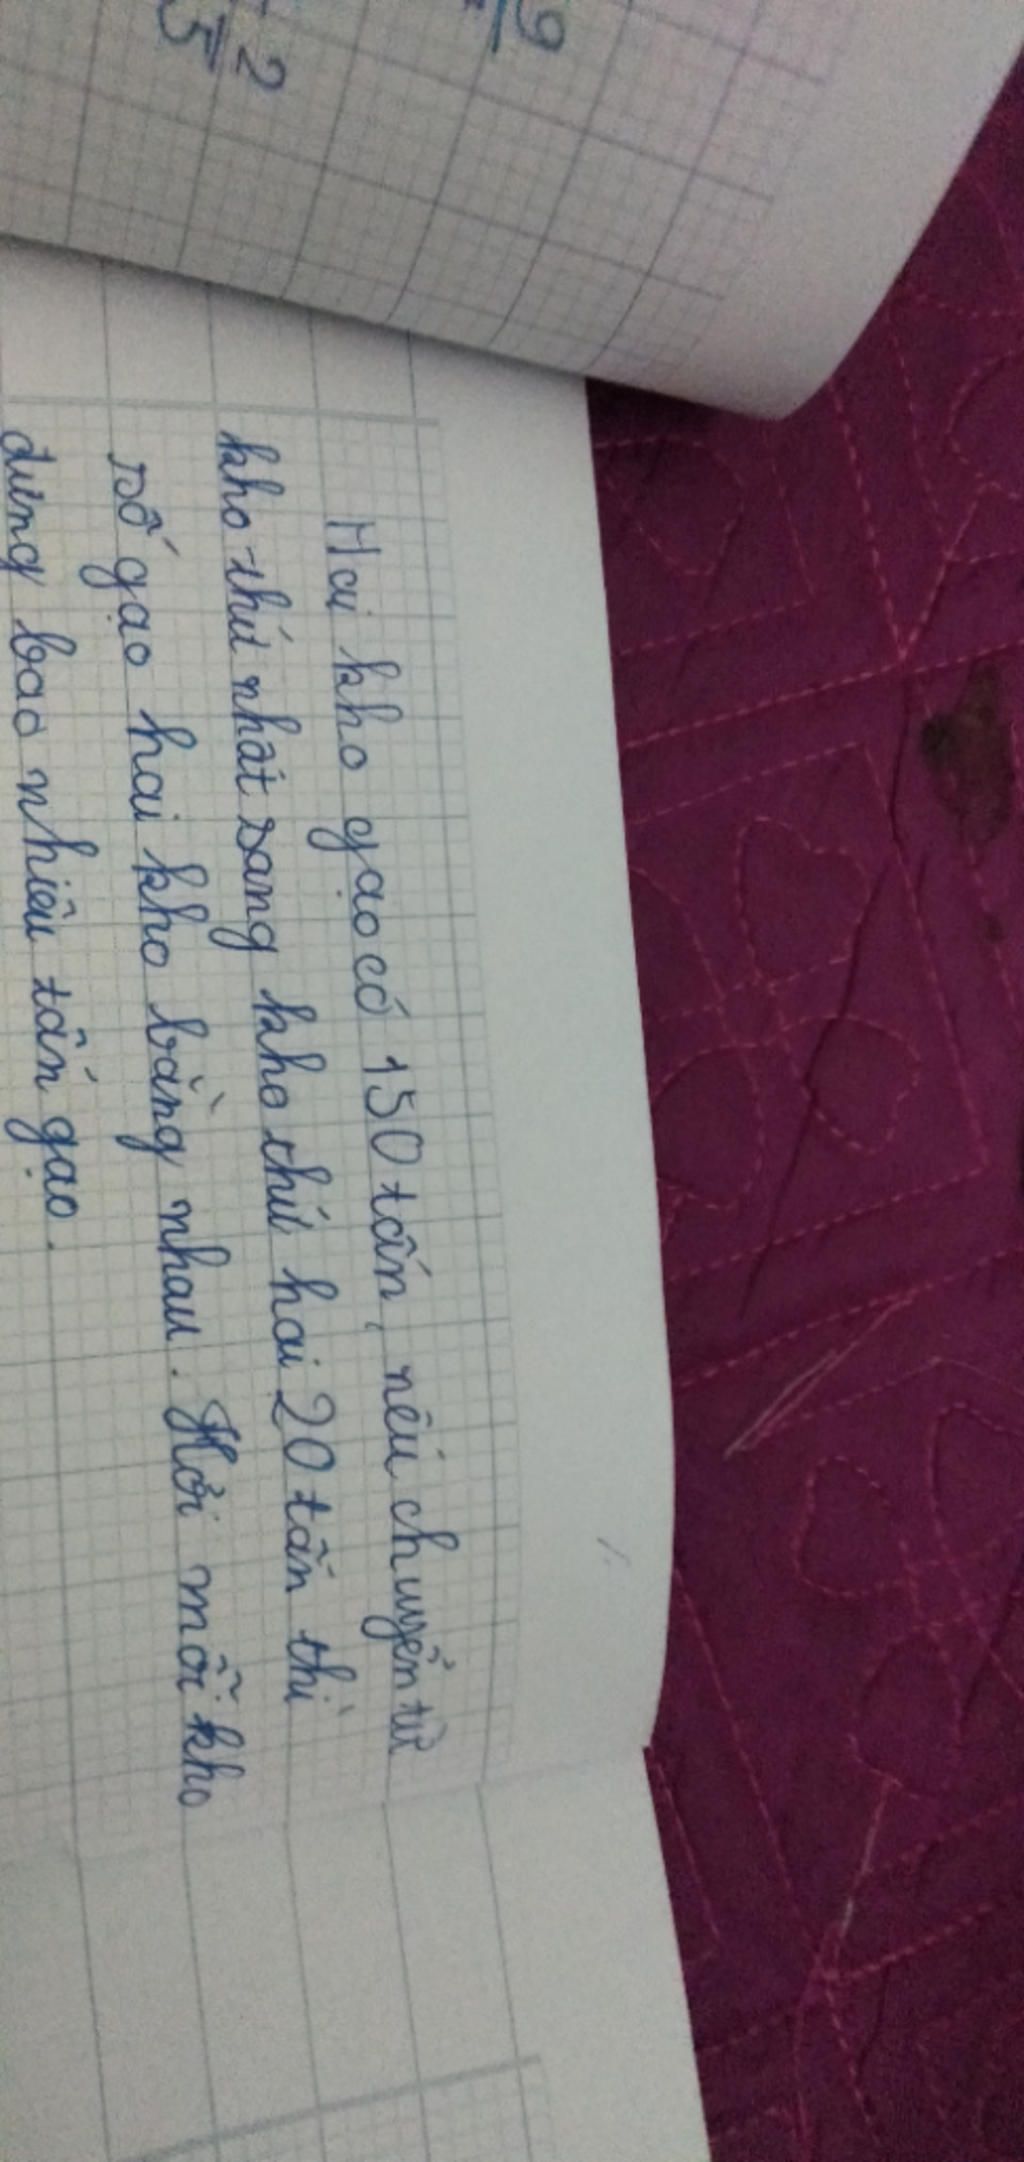 9
2
5
Hai kho gạo có 150 tấn, nếu chuyển từ
kho thứ nhất sang kho thứ hai 20 tấn thì
số gạo hai kho bằng nhau. Hỏi mỗi kho
đựng bao nhiêu tấn gạo.